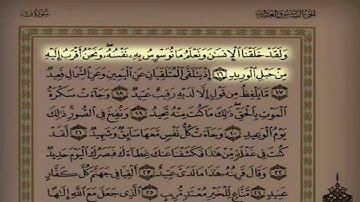 الجزء السادس والعشرون
سورة ق
وَلَقَدْ خَلَقْنَا الْإِنسَانَ وَنَعْلَمُ مَا تُوَسْوِسُ بِهِ نَفْسُهُ وَنَحْنُ أَقْرَبُ إِلَيْهِ
مِنْ حَبْلِ الْوَرِيدِ ١٦ إِذْ يَتَلَقَّى الْمُتَلَقِّيَانِ عَنِ الْيَمِينِ وَعَنِ الشِّمَالِ قَعِيدٌ
١٧ مَا يَلْفِظُ مِن قَوْلٍ إِلَّا لَدَيْهِ رَقِيبٌ عَتِيدٌ ١٨ وَجَاءَتْ سَكْرَةُ
الْمَوْتِ بِالْحَقِّ ذَلِكَ مَا كُنتَ مِنْهُ تَحِيدُ ١٩ وَنُفِخَ فِي الصُّورِ ذَلِكَ
يَوْمُ الْوَعِيدِ ٢٠ وَجَاءَتْ كُلُّ نَفْسٍ مَّعَهَا سَائِقٌ وَشَهِيدٌ ٢١ لَّقَدْ
كُنتَ فِي غَفْلَةٍ مِّنْ هَذَا فَكَشَفْنَا عَنكَ غِطَاءَكَ فَبَصَرُكَ الْيَوْمَ حَدِيدٌ
٢٢ وَقَالَ قَرِينُهُ هَذَا مَا لَدَيَّ عَتِيدٌ ٢٣ أَلْقِيَا فِي جَهَنَّمَ كُلَّ كَفَّارٍ
عَنِيدٍ ٢٤ مَّنَّاعٍ لِّلْخَيْرِ مُعْتَدٍ مُّرِيبٍ ٢٥ الَّذِي جَعَلَ مَعَ اللَّهِ إِلَهًا